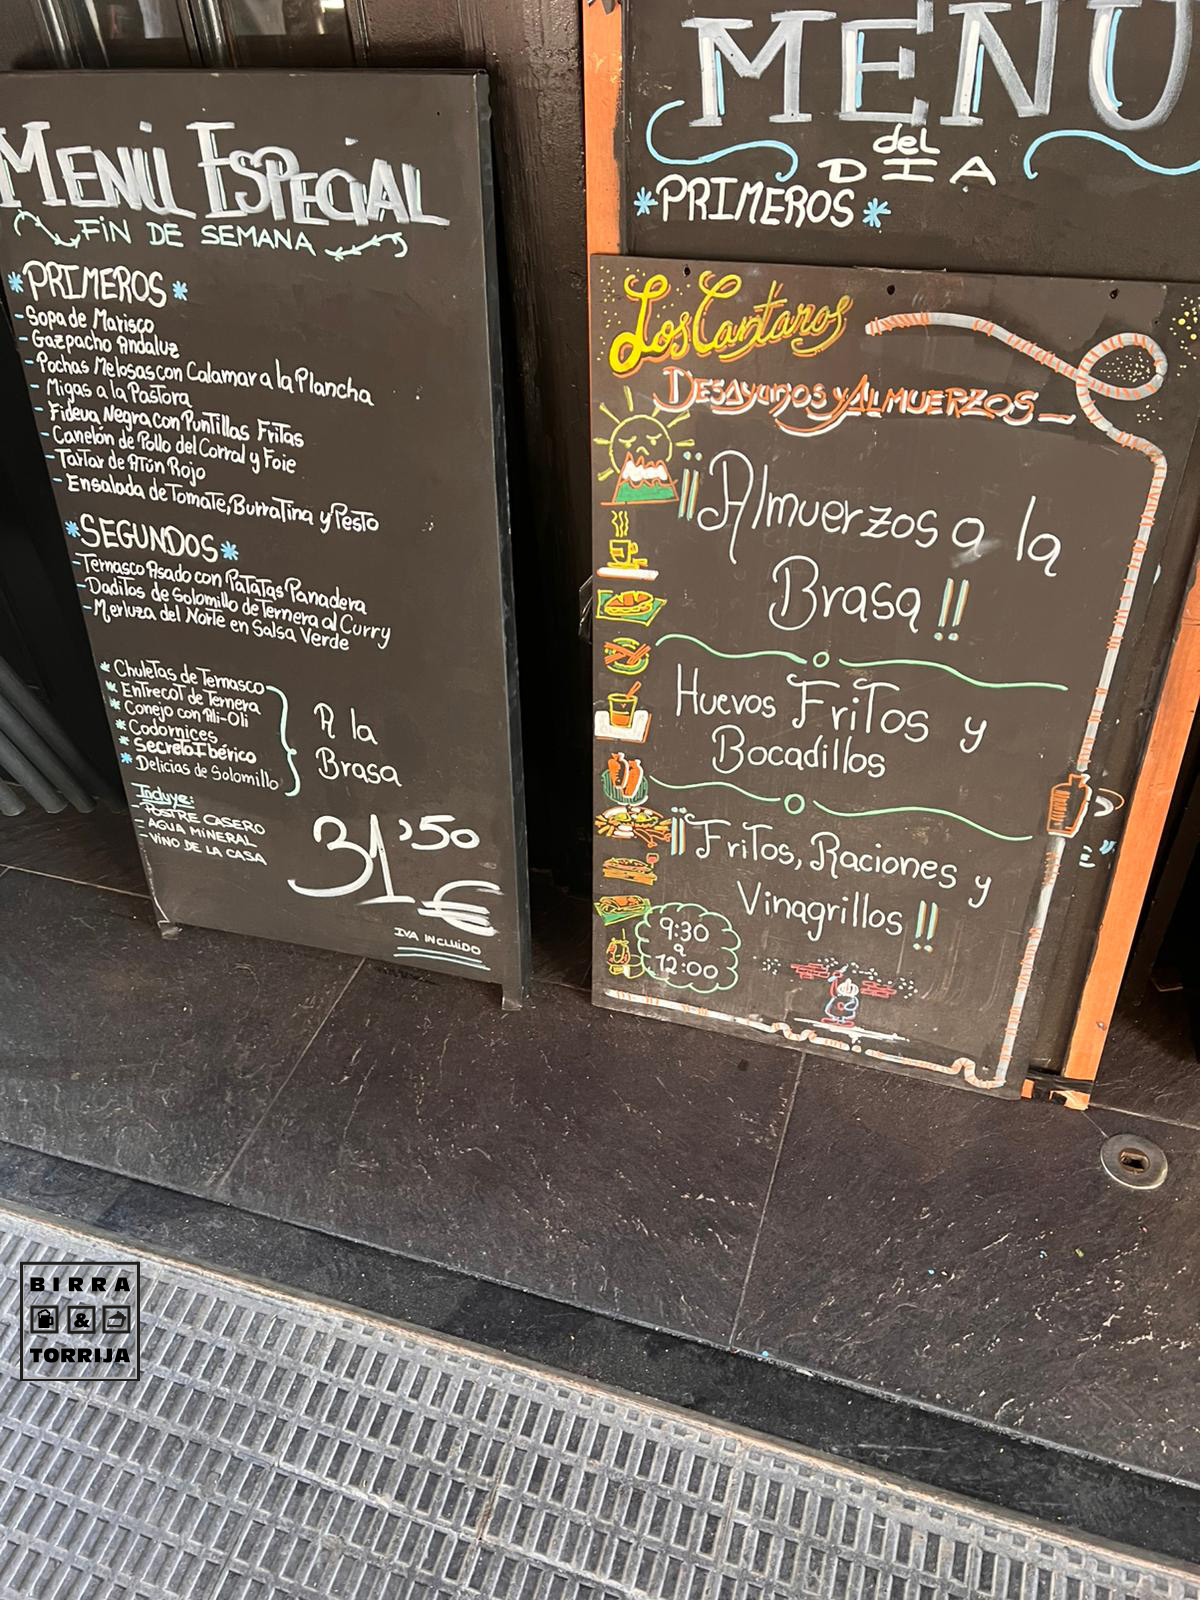 MENÚ ESPECIAL
FIN DE SEMANA
*PRIMEROS*
-Sopa de Marisco
-Gazpacho Andaluz
-Pochas Melosas con Calamar a la Plancha
-Migas a la Pastora
-Fideua Negra con Puntillas Fritas
-Canelón de Pollo del Corral y Foie
-Tartar de Atún Rojo
-Ensalada de Tomate, Burratina y Pesto
*SEGUNDOS*
-Ternasco Asado con Patatas Panadera
-Daditos de Solomillo de Ternera al Curry
-Merluza del Norte en Salsa Verde
* Chuletas de Ternasco
* Entrecot de Ternera
* Conejo con Ali-Oli
* Codornices
* Secreto Ibérico
* Delicias de Solomillo
A la
Brasa
Incluye:
-POSTRE CASERO
-AGUA MINERAL
-VINO DE LA CASA
31'50
€
IVA INCLUIDO
MENÚ
del
DIA
*PRIMEROS*
Los Cantaros
DESAYUNOS Y ALMUERZOS
¡¡Almuerzos a la
Brasa!!
Huevos Fritos y
Bocadillos
¡¡Fritos, Raciones y
Vinagrillos!!
9:30
a
12:00
BIRRA
&
TORRIJA